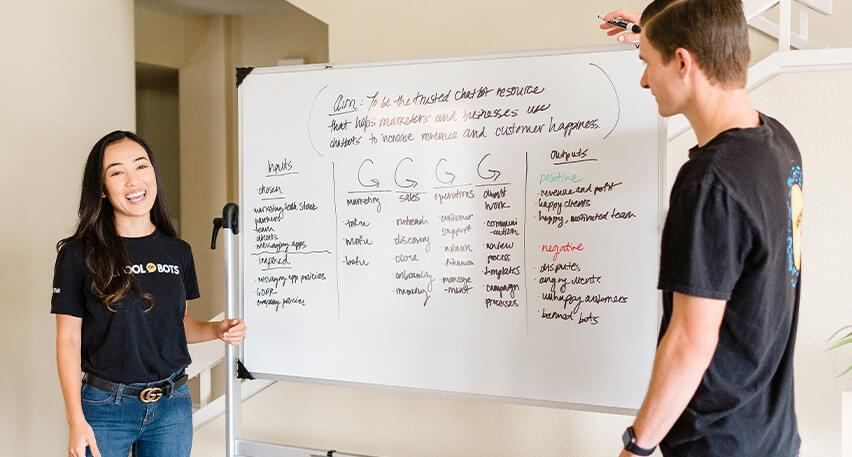 Aim: To be the trusted chatbot resource
that helps marketers and businesses use
chatbots to increase revenue and customer happiness.
Inputs
chosen
marketing tech stack
partners
team
clients
messaging apps
imposed
messaging app policies
GDPR
company policies
marketing
· tofu
· mofu
· bofu
sales
· outreach
· discovery
· close
· onboarding
operations
· customer
support
· admin
· finance
· manage
-ment
client
work
· communi
-cation
· review
process
· templates
· campaign
processes
outputs
positive
· revenue and profit
· happy clients
· happy, motivated team
negative
· disputes
· angry clients
· unhappy customers
· banned bots
OOL BOTS